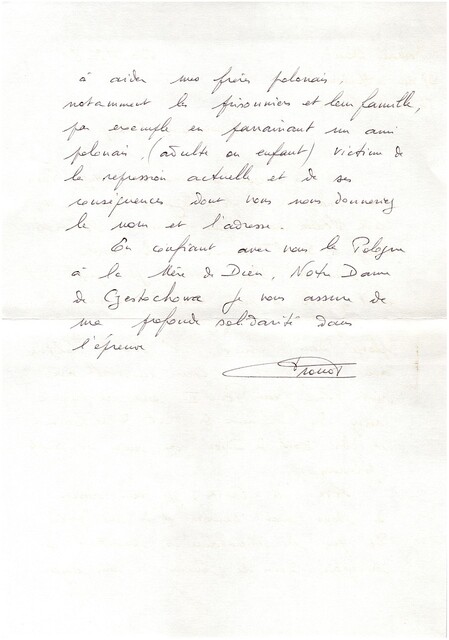 à aider mes frères polonais,
notamment les prisonniers et leur famille,
par exemple en parrainant un ami
polonais (adulte ou enfant) victime de
la repression actuelle et de ses
conséquences dont vous nous donneriez
le nom et l'adresse.
En confiant avec vous la Pologne
à la Mère de Dieu, Notre Dame
de Czestochowa je vous assure de
ma profonde solidarité dans
l'épreuve